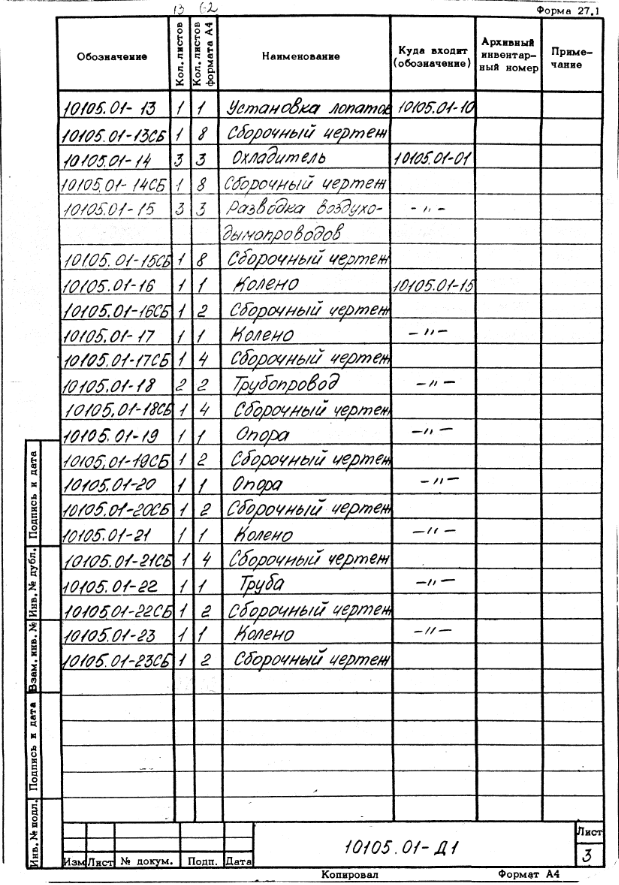 13 62
Форма 27.1
Обозначение Кол. листов Кол. листов формата А4 Наименование Куда входит (обозначение) Архивный инвентар-ный номер Приме-чание
10105.01-13 1 1 Установка лопаток 10105.01-10
10105.01-13СБ 1 8 Сборочный чертеж
10105.01-14 3 3 Охладитель 10105.01-01
10105.01-14СБ 1 8 Сборочный чертеж
10105.01-15 3 3 Разводка воздухо- -〃-
дымопроводов
10105.01-15СБ 1 8 Сборочный чертеж
10105.01-16 1 1 Колено 10105.01-15
10105.01-16СБ 1 2 Сборочный чертеж
10105.01-17 1 1 Колено -〃-
10105.01-17СБ 1 4 Сборочный чертеж
10105.01-18 2 2 Трубопровод -〃-
10105.01-18СБ 1 4 Сборочный чертеж
10105.01-19 1 1 Опора -〃-
10105.01-19СБ 1 2 Сборочный чертеж
10105.01-20 1 1 Опора -〃-
10105.01-20СБ 1 2 Сборочный чертеж
10105.01-21 1 1 Колено -〃-
10105.01-21СБ 1 4 Сборочный чертеж
10105.01-22 1 1 Труба -〃-
10105.01-22СБ 1 2 Сборочный чертеж
10105.01-23 1 1 Колено -〃-
10105.01-23СБ 1 2 Сборочный чертеж
Инв. № подл. Подпись и дата Взам. инв. № Инв. № дубл. Подпись и дата
Изм Лист № докум. Подп. Дата
10105.01-Д1
Лист
3
Копировал Формат А4